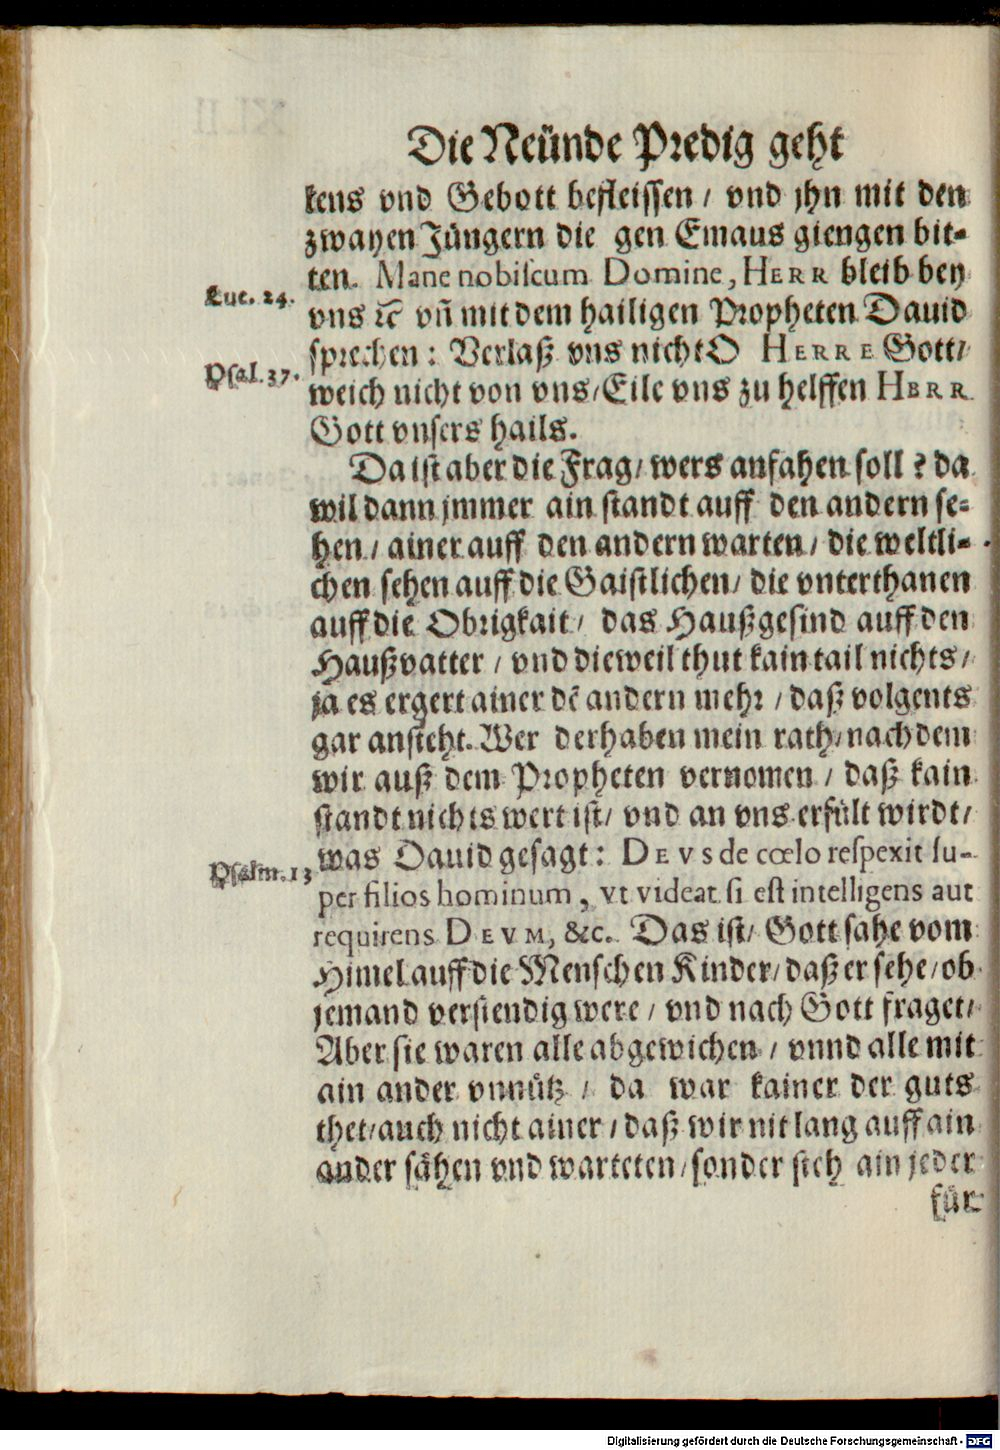 Die Neünde Predig geht
kens vnd Gebott befleissen / vnd jhn mit den
zwayen Jüngern die gen Emaus giengen bit-
ten. Mane nobiscum Domine, HERR bleib bey
Luc. 24.
vns ꝛc̃ vñ mit dem hailigen Propheten Dauid
sprechen: Verlaß vns nicht O HERRE Gott/
Psal. 37.
weich nicht von vns/Eile vns zu helffen HERR
Gott vnsers hails.
Da ist aber die Frag/ wers anfahen soll? da
wil dann jmmer ain standt auff den andern se-
hen / ainer auff den andern warten / die weltli-
chen sehen auff die Gaistlichen/ die vnterthanen
auff die Obrigkait / das Haußgesind auff den
Haußvatter / vnd dieweil thut kain tail nichts /
ja es ergert ainer dẽ andern mehr / daß volgents
gar ansteht. Wer derhaben mein rath/nach dem
wir auß dem Propheten vernomen / daß kain
standt nichts wert ist/ vnd an vns erfült wirdt/
was Dauid gesagt: DEVS de cœlo respexit su-
Psalm. 13
per filios hominum, vt videat si est intelligens aut
requirens DEVM, &c. Das ist/ Gott sahe vom
Himel auff die Menschen Kinder/daß er sehe/ob
jemand verstendig were / vnd nach Gott fraget/
Aber sie waren alle abgewichen / vnnd alle mit
ain ander vnnütz / da war kainer der guts
thet/auch nicht ainer / daß wir nit lang auff ain
ander sähen vnd warteten/sonder sich ain jeder
für
Digitalisierung gefördert durch die Deutsche Forschungsgemeinschaft - DFG